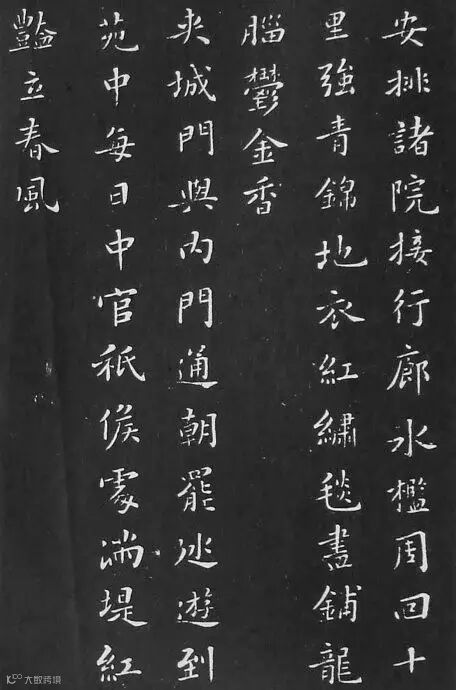 安排諸院接行廊水檻周回十
里強青錦地衣紅繡毯盡鋪龍
腦鬱金香
夾城門與內門通朝罷巡遊到
苑中每日中官祗候處滿堤紅
豔立春風
大数跨境